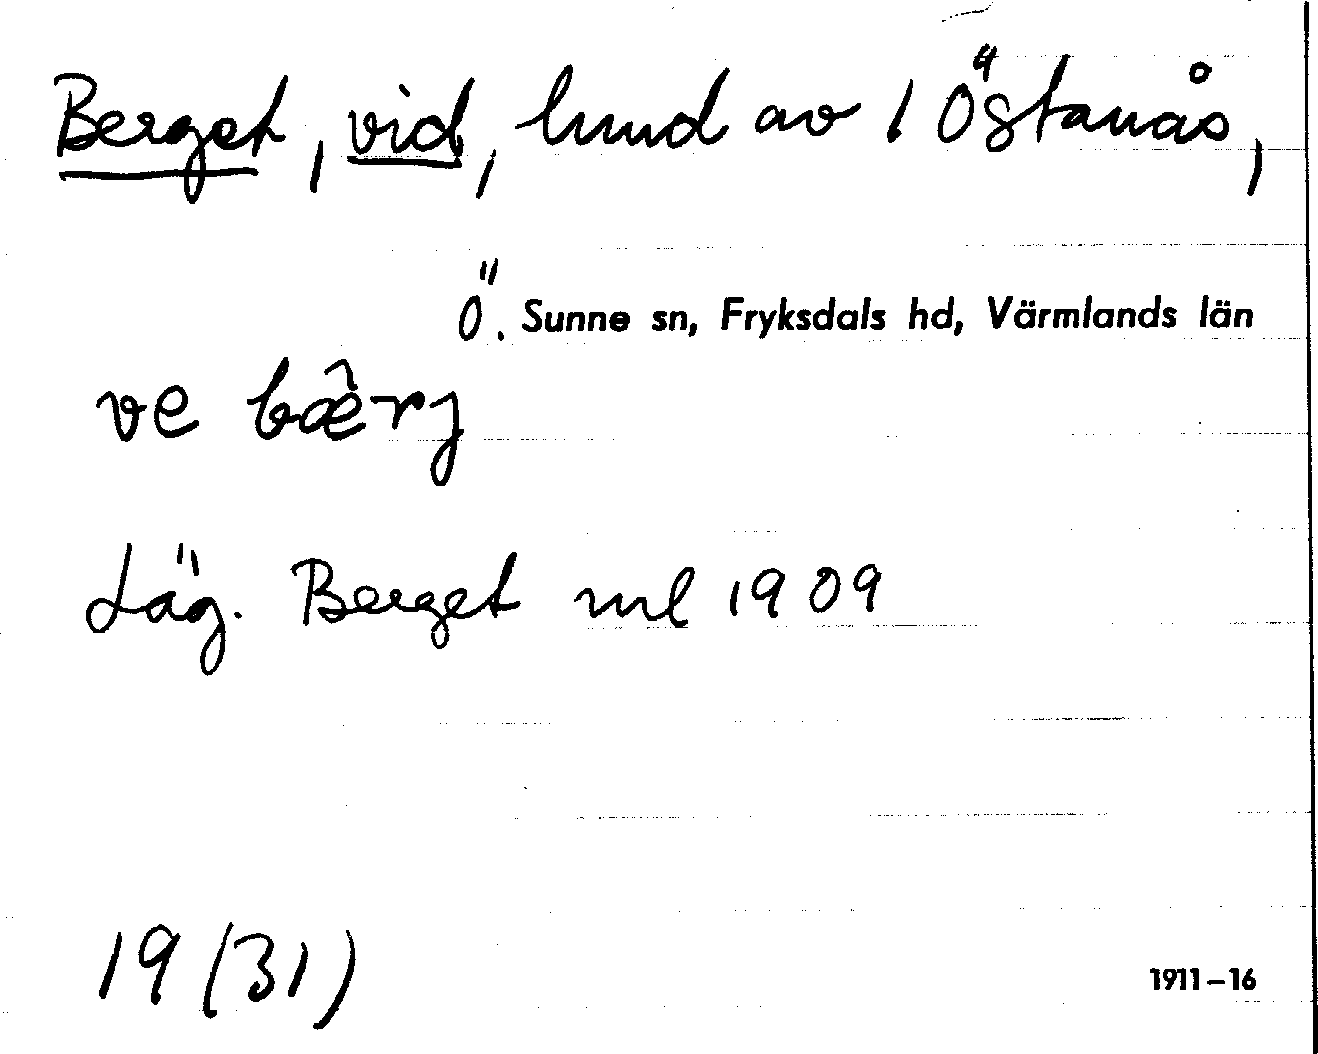 Berget, vid, hmd av 1 Östanås,
Ö. Sunne sn, Fryksdals hd, Värmlands län
ve bæ̂rj
Läg. Berget ml 1909
19 (31)
1911–16